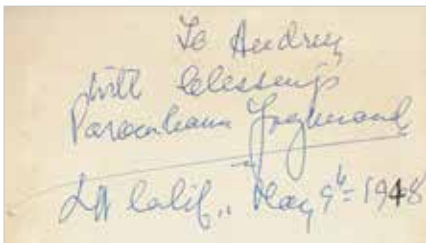 To Audrey
with blessings
Paramhansa Yogananda
LA Calif., May 9th 1948